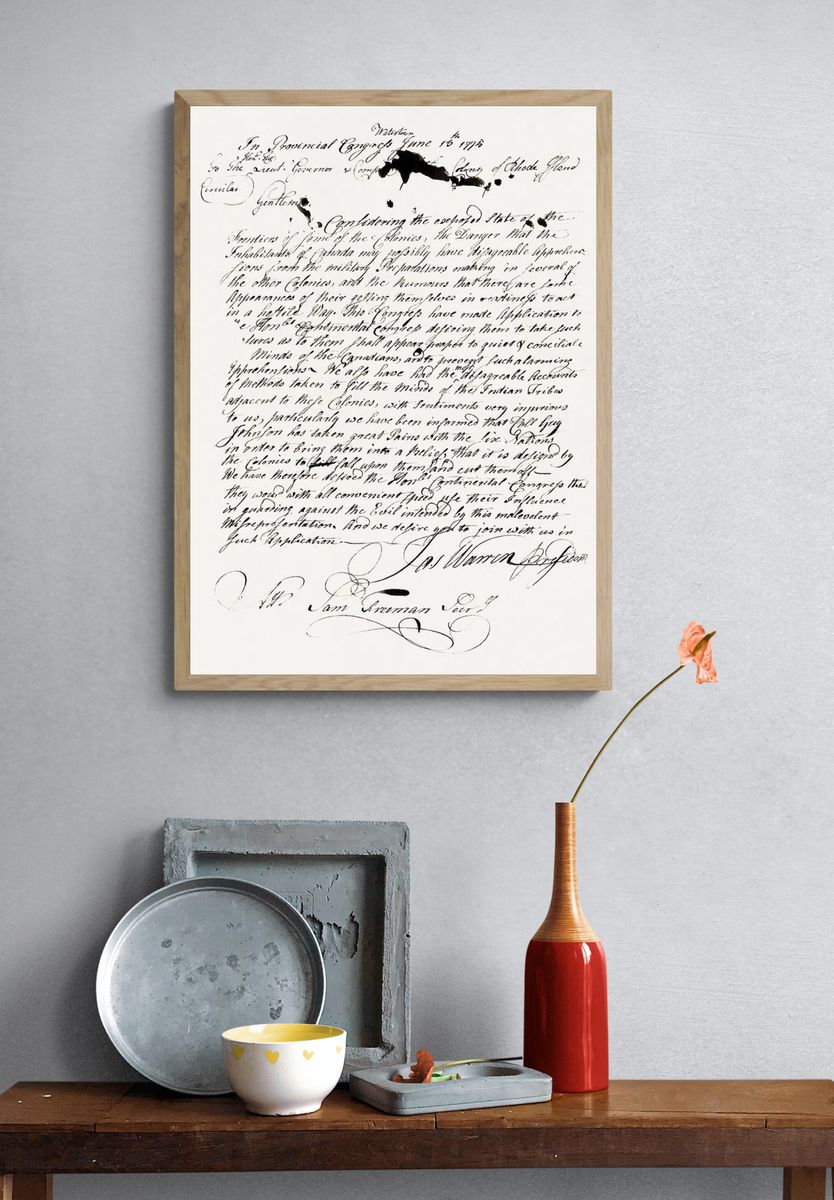 Watertown
In Provincial Congress June 15th 1775
Honble
To The Lieut. Governor & Comp Colony of Rhode Island
Circular
Gentlem
Considering the exposed State of the
Frontiers of some of the Colonies, the Danger that the
Inhabitants of Canada may possibly have disagreable Apprehen-
sions from the military Preparations making in several of
the other Colonies, and the Rumours that there are some
Appearances of their getting themselves in readiness to act
in a hostile Way. This Congress have made Application to
e Honble Continental Congress desiring them to take such
sures as to them shall appear proper to quiet & conciliate
Minds of the Canadians, and to prevent such alarming
Apprehensions. We also have had the most disagreable Accounts
of Methods taken to fill the Minds of the Indian Tribes
adjacent to these Colonies, with Sentiments very injurious
to us; particularly we have been informed that Coll Guy
Johnson has taken great Pains with the Six Nations
in order to bring them into a Belief, that it is designed by
the Colonies to fall upon them and cut them off
We have therefore desired the Honble Continental Congress that
they woud with all convenient Speed use their Influence
in guarding against the Evil intended by this malevolent
Misrepresentation, And we desire you to join with us in
such Application.
Jas Warren President
Saml Freeman Secry